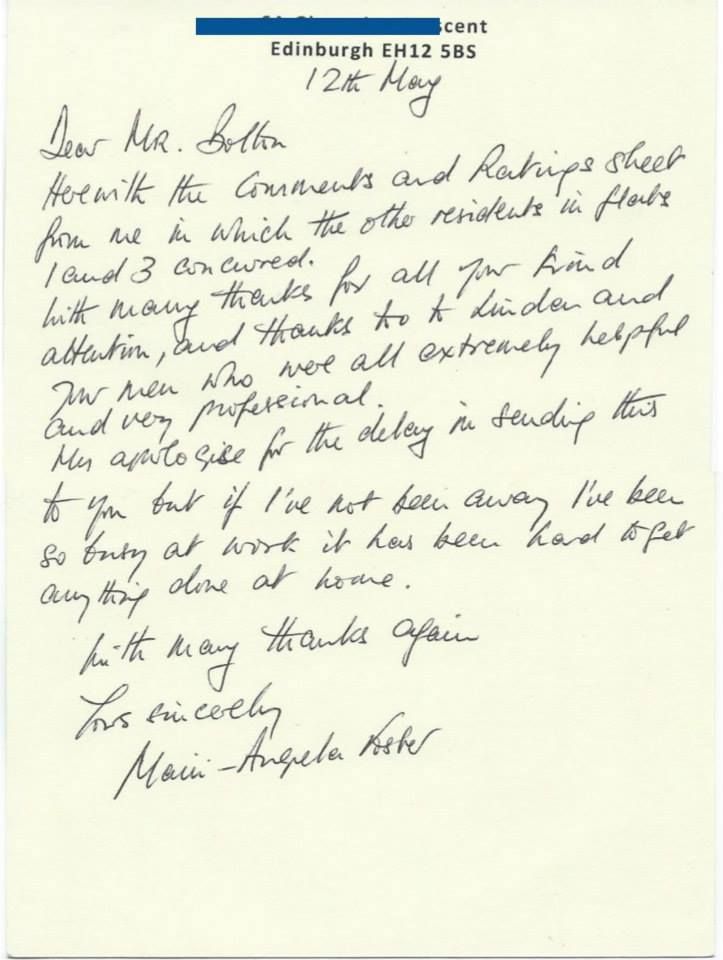 scent
Edinburgh EH12 5BS
12th May
Dear Mr. Bolton
Herewith the Comments and Ratings sheet
from me in which the other residents in flats
1 and 3 concurred.
With many thanks for all your kind
attention, and thanks too to Lindon and
your men who were all extremely helpful
and very professional.
My apologise for the delay in sending this
to you but if I've not been away I've been
so busy at work it has been hard to get
anything done at home.
With many thanks again
Yours sincerely
Mairi-Angela Foster